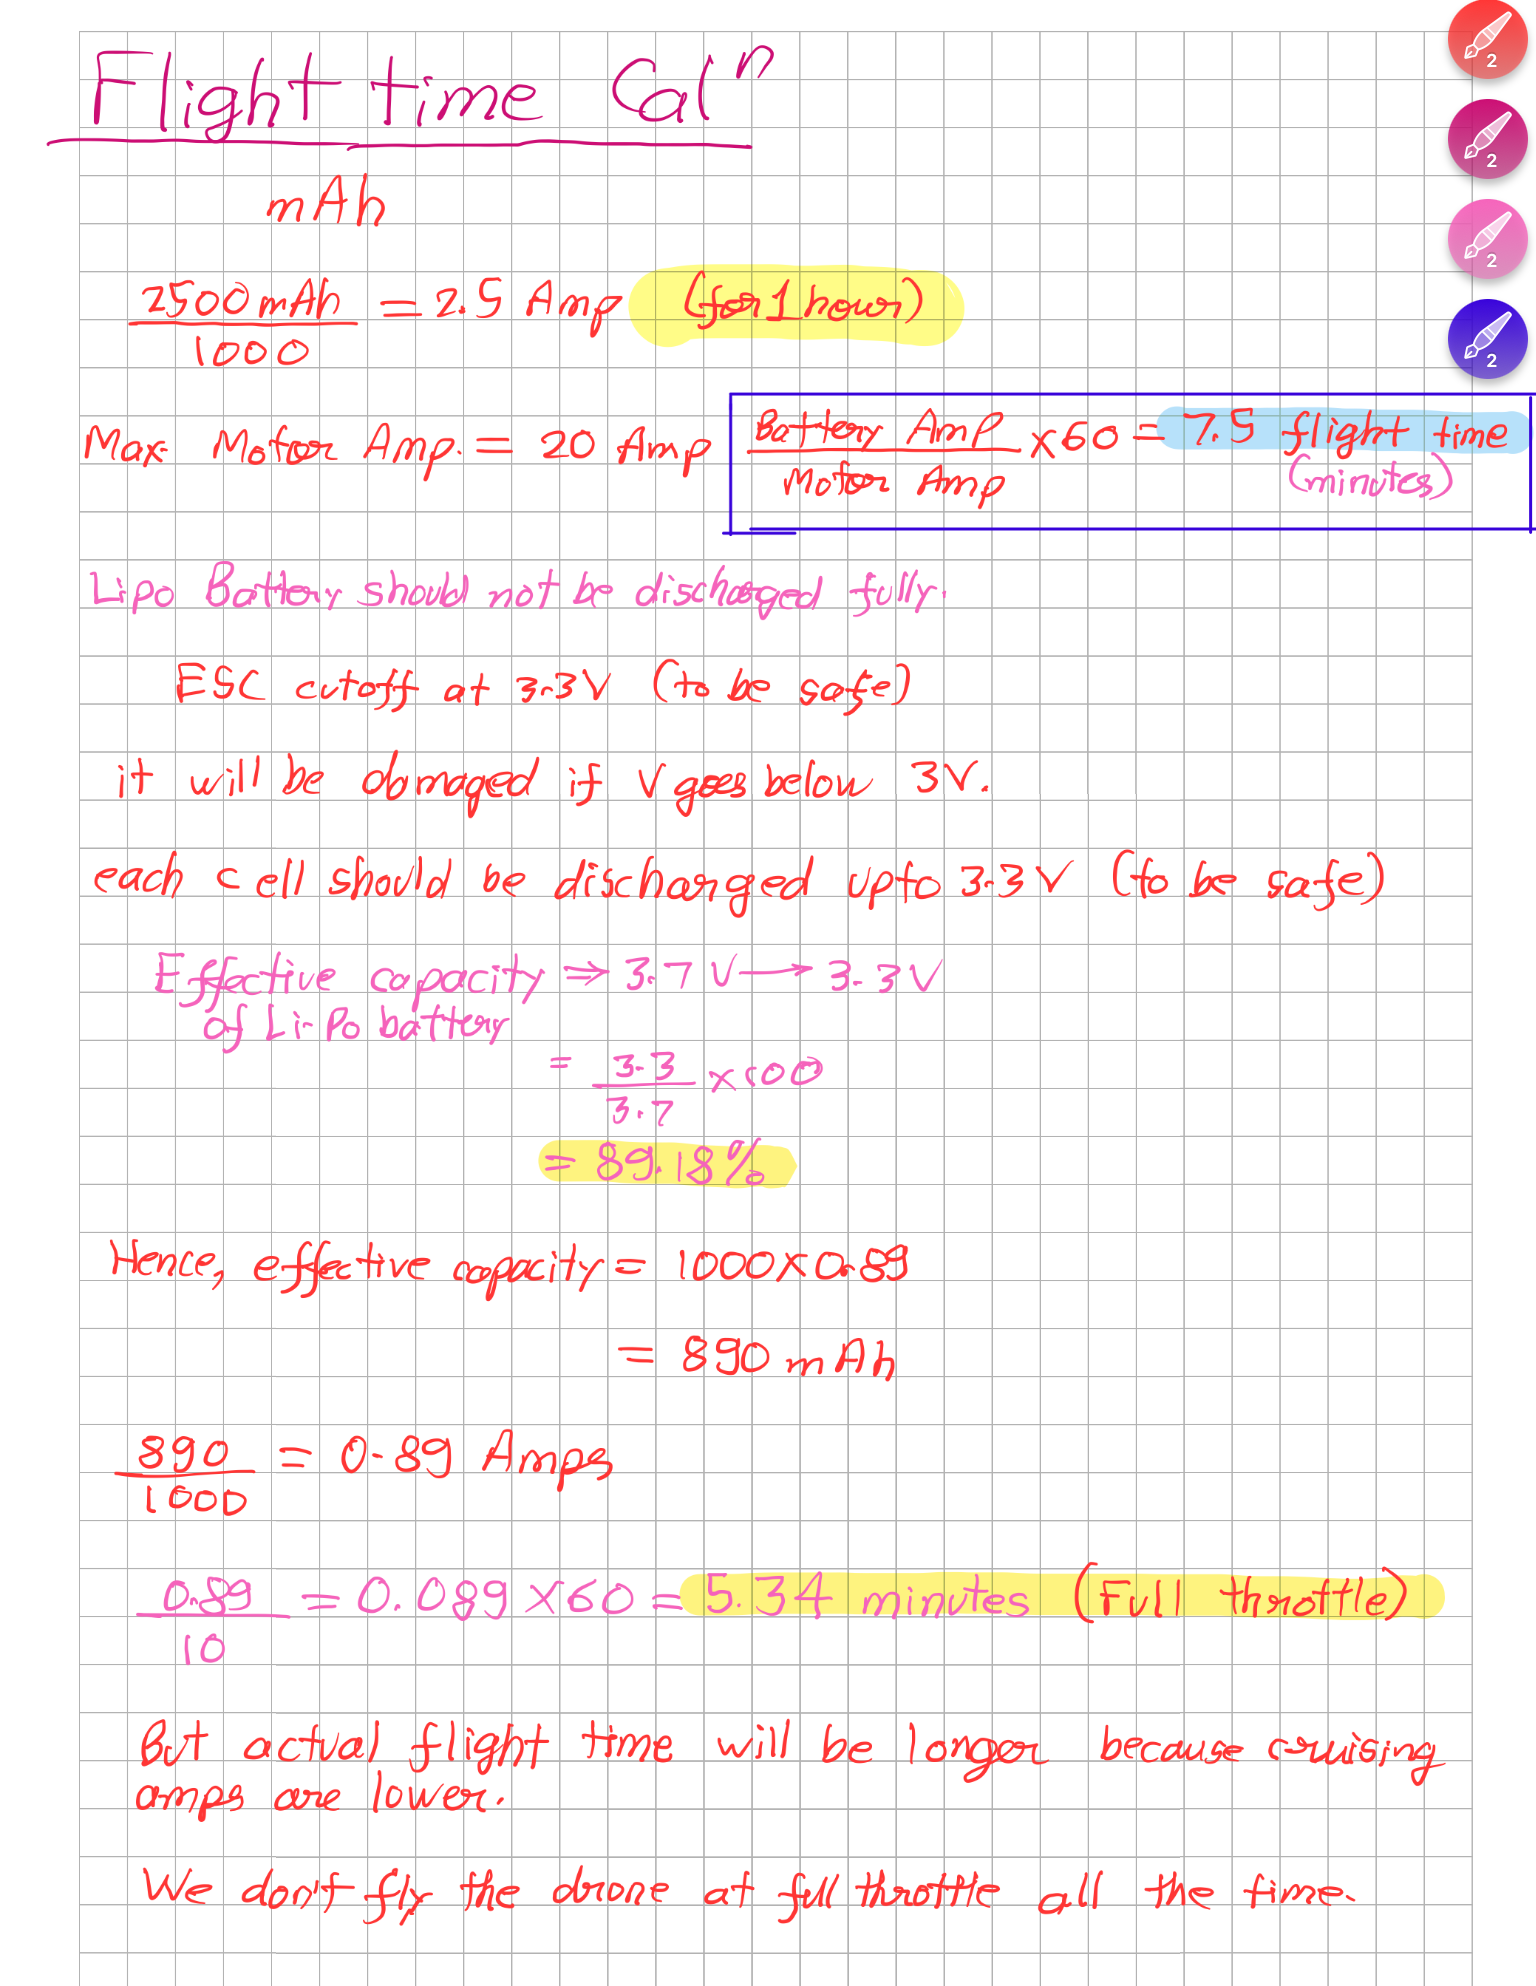 Flight time Calⁿ
mAh
2500 mAh / 1000 = 2.5 Amp (for 1 hour)
Max. Motor Amp. = 20 Amp
Battery Amp / Motor Amp × 60 = 7.5 flight time
(minutes)
Lipo Battery should not be discharged fully.
ESC cutoff at 3.3V (to be safe)
it will be damaged if V goes below 3V.
each cell should be discharged upto 3.3V (to be safe)
Effective capacity ⇒ 3.7 V → 3.3V
of Li-Po battery
= 3.3 / 3.7 × 100
= 89.18%
Hence, effective capacity = 1000 × 0.89
= 890 mAh
890 / 1000 = 0.89 Amps
0.89 / 10 = 0.089 × 60 = 5.34 minutes (Full throttle)
But actual flight time will be longer because cruising
amps are lower.
We don't fly the drone at full throttle all the time.
2
2
2
2